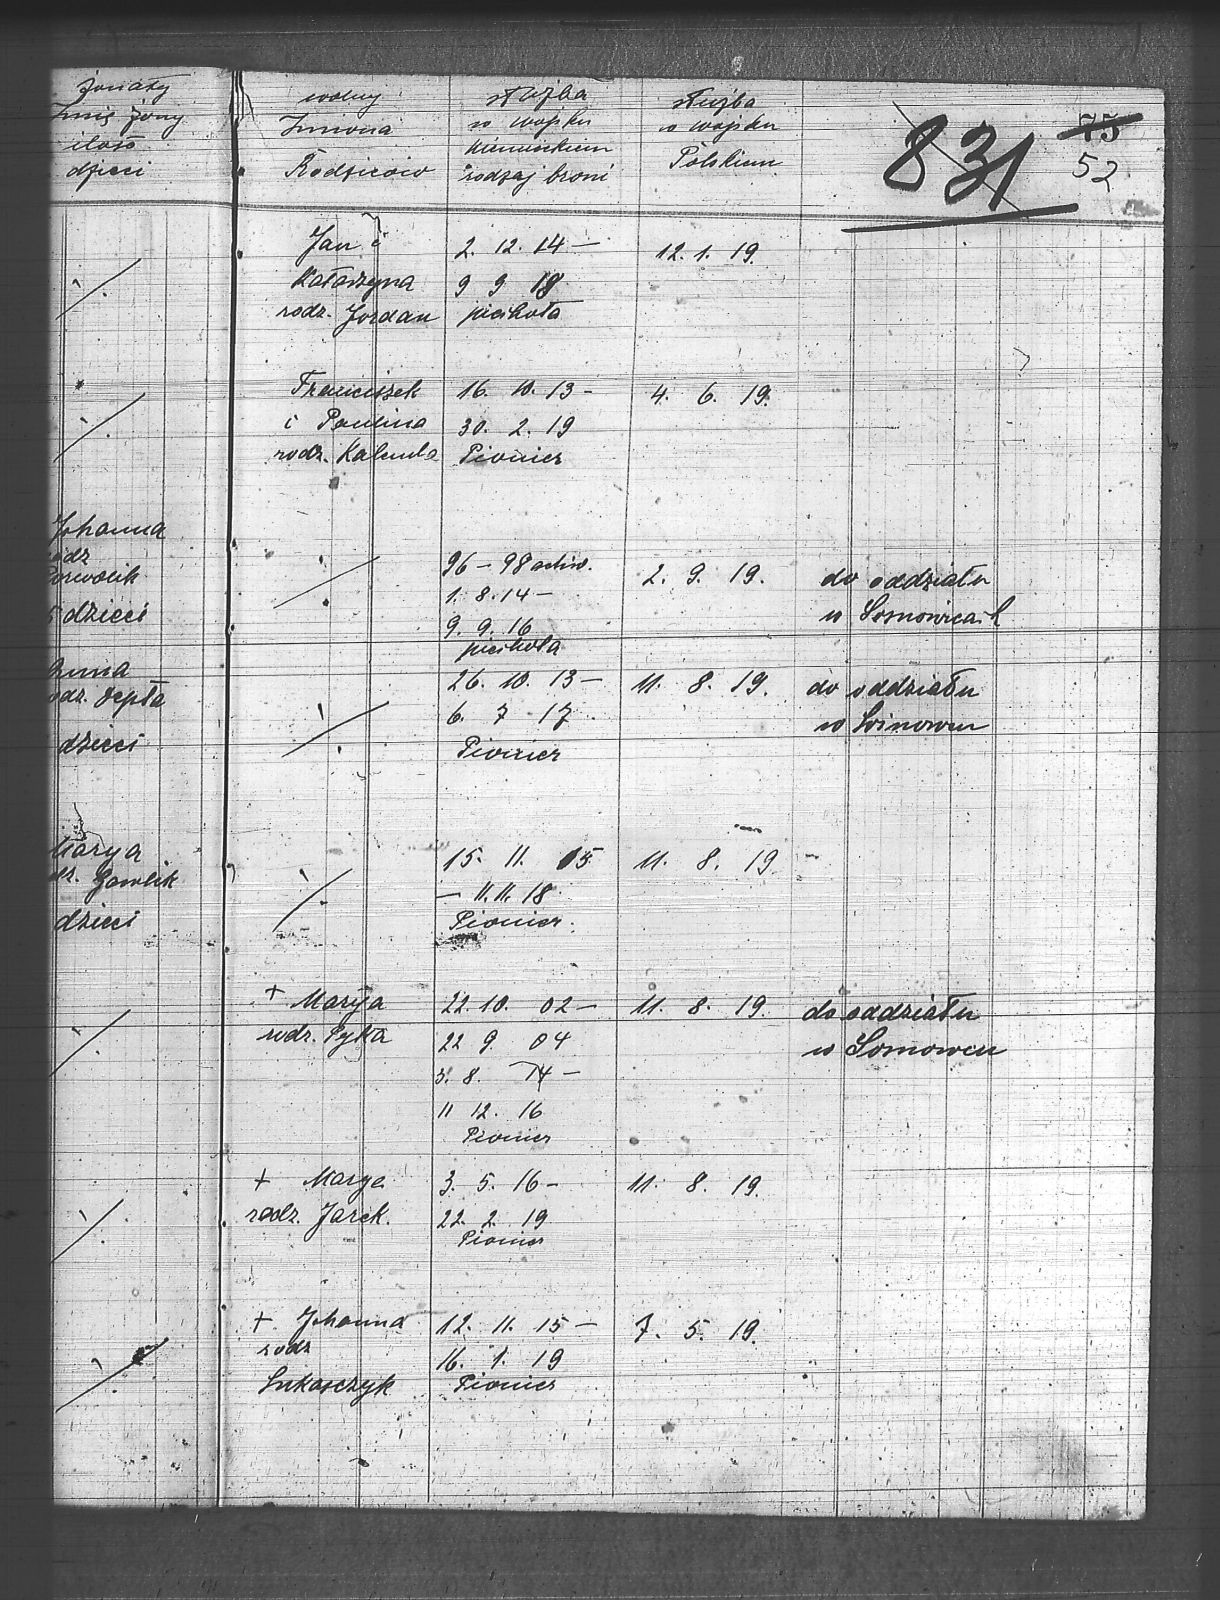 żonaty
Imię żony
ilość
dzieci
wolny
Imiona
Rodziców
służba
w wojsku
niemieckiem
rodzaj broni
służba
w wojsku
Polskiem
831
75
52
Jan i
Katarzyna
rodz. Jordan
2. 12. 14 —
9 9 18
piechota
12. 1. 19.
Franciszek
i Paulina
rodz. Kaluda
16. 10. 13 -
30. 2. 19
Pionier
4. 6. 19.
Johanna
odz
5 dzieci
96 — 98 actiw.
1. 8. 14 —
9. 9. 16
piechota
2. 9. 19.
do oddziału
w Somowicach
Anna
odz. Depta
dzieci
26. 10. 13 —
6. 7 17
Pionier
11. 8. 19.
do oddziału
w
Marya
dz. Gawlik
dzieci
15. 11. 15
— 11. 11. 18
Pionier.
11. 8. 19
+ Marya
rodz. Pyka
22. 10. 02 —
22 9. 04
3. 8. 14 —
11 12. 16
Pionier
11. 8. 19.
do oddziału
w Somowcu
+ Marya
rodz. Jarek.
3. 5. 16 —
22. 2. 19
Pionier
11. 8. 19.
+ Johanna
rodz
Lukasczyk
12. 11. 15 —
16. 1. 19
Pionier
7. 5. 19.